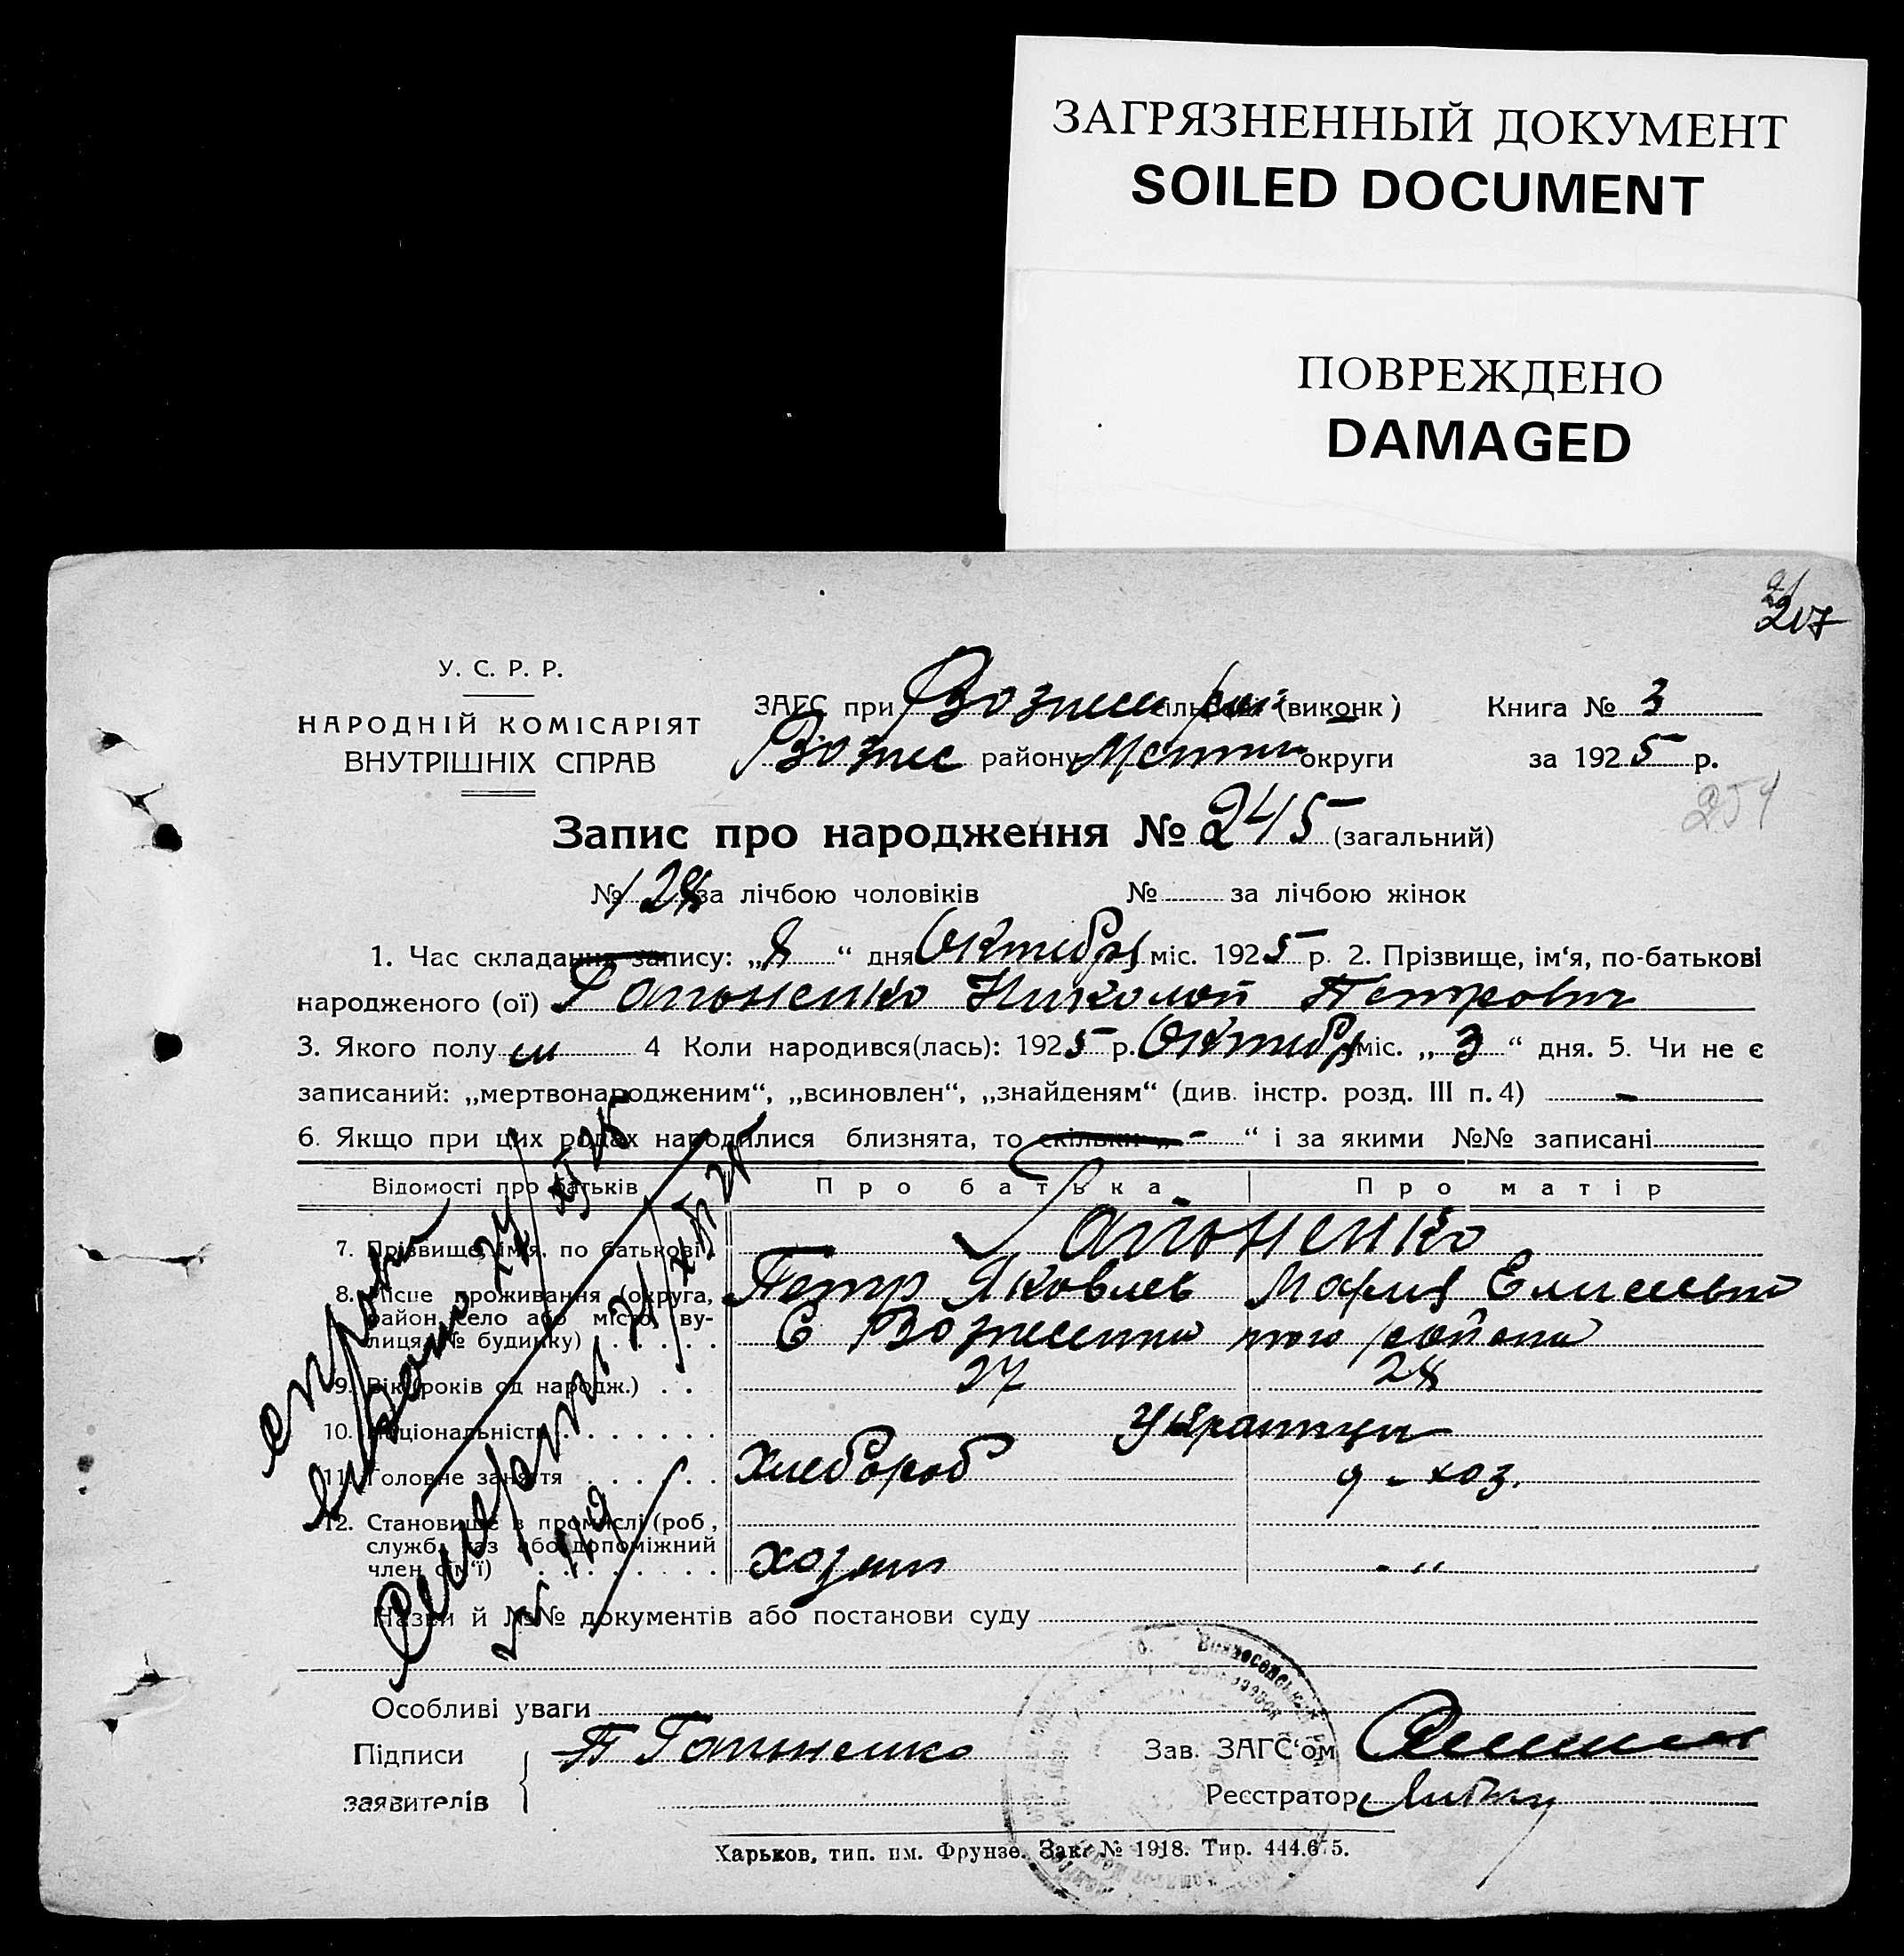 ЗАГРЯЗНЕННЫЙ ДОКУМЕНТ
SOILED DOCUMENT
ПОВРЕЖДЕНО
DAMAGED
207
У. С. Р. Р.
НАРОДНІЙ КОМІСАРІЯТ
ВНУТРІШНІХ СПРАВ
ЗАГС при Вознес рай (виконк) Книга № 3
Вознес району округи за 1925 р.
254
Запис про народження № 245 (загальний)
№ 128 за лічбою чоловіків № за лічбою жінок
1. Час складання запису: „8“ дня Октября міс. 1925 р. 2. Прізвище, ім‘я, по-батькові
народженого (ої) Гапоненко Николай Петрович
3. Якого полу м 4 Коли народився(лась): 1925 р. Октября міс. „3“ дня. 5. Чи не є
записаний: „мертвонародженим“, „всиновлен“, „знайденям“ (див. інстр. розд. III п. 4) -
6. Якщо при цих родах народилися близнята, то скільки „-“ і за якими №№ записані
Відомості про батьків Про батька Про матір
7. Прізвище, ім‘я, по батькові Гапоненко
8. Місце проживання (округа, Петр Яковлев Мария Елисеевна
район, село або місто, ву-
лиця, № будинку) С того района
9. Вік (років од народж.) 27 28
10. Національність
11. Головне заняття Хлебороб д-хоз.
12. Становище в промислі (роб,
служб, газ або допоміжний
член сім‘ї) хозяин - "
Назви й №№ документів або постанови суду
Особливі уваги
Підписи П Гапоненко Зав. ЗАГС‘ом
заявителів Реєстратор
Харьков, тип. им. Фрунзе. Зак. № 1918. Тир. 444.675.